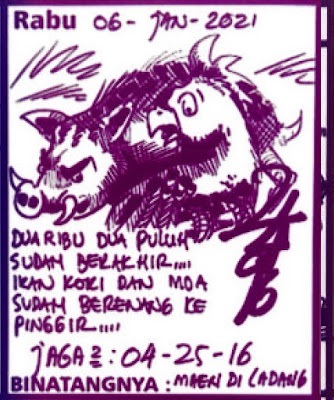 Rabu 06 - JAN - 2021
DUA RIBU DUA PULUH
SUDAH BERAKHIR....
IKAN KOKI DAN MOA
SUDAH BERENANG KE
PINGGIR....
JAGA 2 : 04-25-16
BINATANGNYA : MAEN DI LADANG